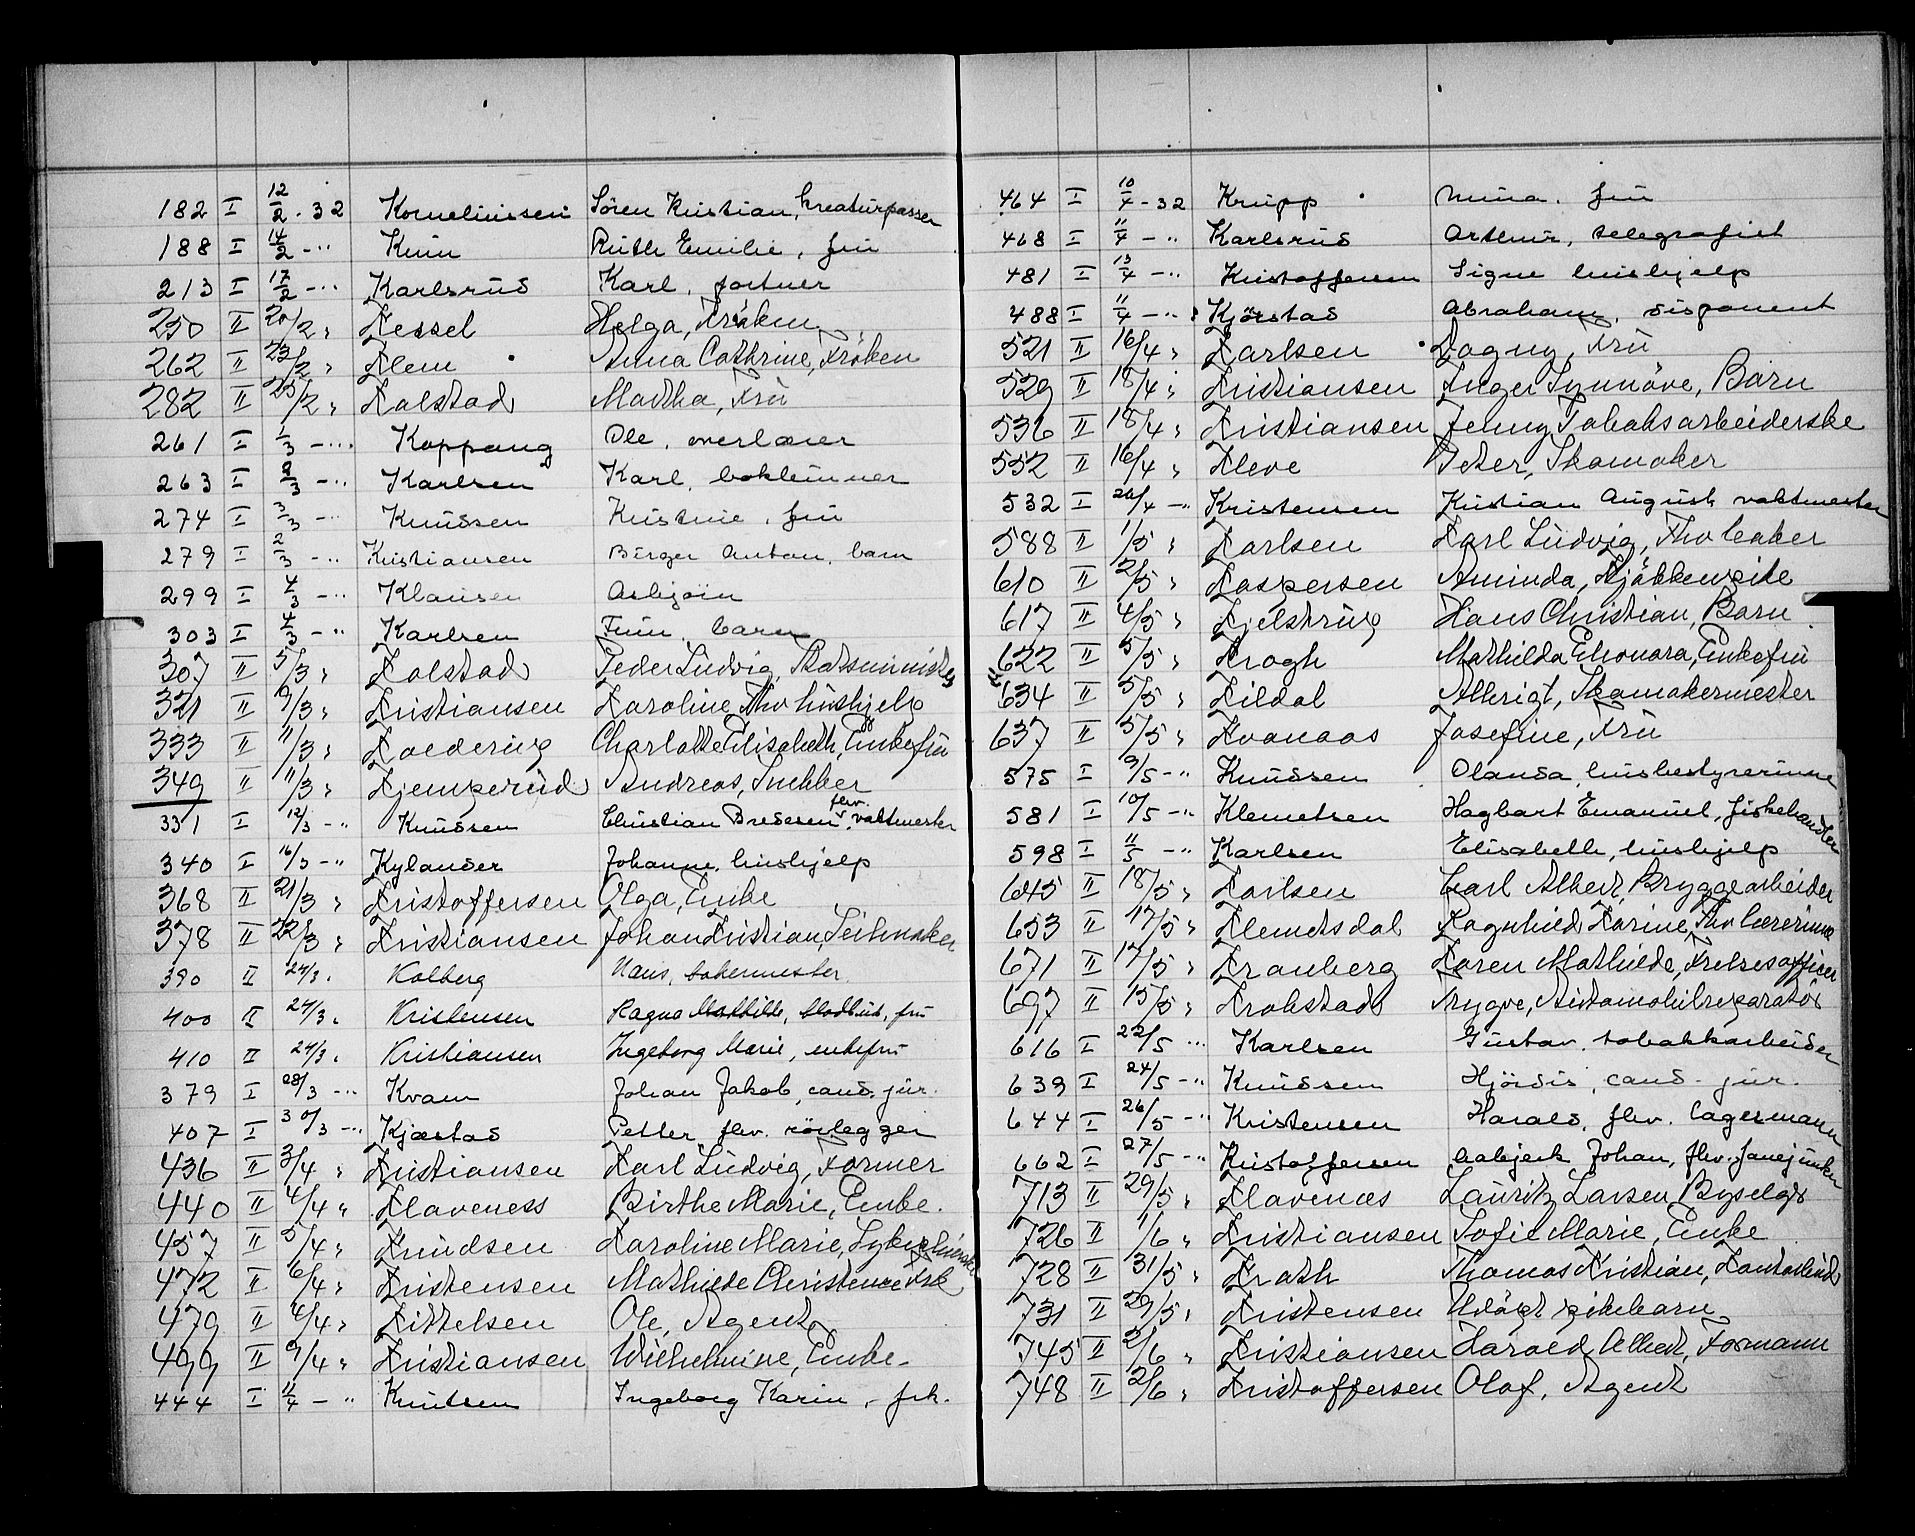 182 I 12/2 - 32 Korneliussen Sören Kristian, kreaturpasser
188 I 14/2 - " Kuur Ruth Emilie, fru
213 I 17/2 - " Karlsrud Karl, portner
250 II 20/2 " Kessel Helga, Fröken
262 II 23/2 " Klem Anna Cathrine, Fröken
282 II 25/2 " Kalstad Martha, Fru
261 I 1/3 - " Koppang Ole, overlærer
263 I 2/3 - " Karlsen Karl, boktrinner
274 I 3/3 - " Knudsen Kristine, fru
279 I 2/3 - " Kristiansen Birger Anton, barn
299 I 4/3 - " Klausen Asbjörn
303 I 4/3 - " Karlsen Finn, barn
307 II 5/3 " Kolstad Peder Ludvig, Statsminister
321 II 9/3 " Kristiansen Karoline, Fhv hushjelp
333 II 11/3 " Koederug Charlotte Elisabeth, Enkefru
349 II 11/3 " Kjemperud Andreas, Snekker
331 I 12/3 - " Knudsen Christian Bredesen, fhv. vaktmester
340 I 16/3 - " Kylander Johanne, hushjelp
368 II 21/3 " Kristoffersen Olga, Enke
378 II 22/3 " Kristiansen Johan Kristian, Seilmaker
390 II 24/3 " Kolberg Hans, bakermester
400 II 24/3 " Kristensen Ragna Mathilde, fru
410 II 24/3 " Kristiansen Ingeborg Marie, enkefru
379 I 28/3 - " Kvam Johan Jakob, cand. jur.
407 I 30/3 - " Kjæstad Petter, fhv. rörlegger
436 II 3/4 " Kristiansen Karl Ludvig, Former
440 II 4/4 " Klaveness Birthe Marie, Enke.
457 II 5/4 " Knudsen Karoline Marie,
472 II 6/4 " Kristensen Mathilde Christence Frk
479 II 6/4 " Kittelsen Ole, Agent
499 II 9/4 " Kristiansen Wilhelmine, Enke.
444 I 11/4 - " Knutsen Ingeborg Karin, frk.
464 I 10/4 - 32 Krupp Mina, fru
468 I 11/4 - " Karlsrud Arthur, telegrafist
481 I 13/4 - " Kristoffersen Signe hushjelp
488 I 11/4 - " Kjörstad Abraham, disponent
521 II 16/4 " Karlsen Dagny, Fru
529 II 18/4 " Kristiansen Inger Synnöve, Barn
536 II 18/4 " Kristiansen Jenny Tobaksarbeiderske
552 II 16/4 " Kleve Peter, Skomaker
532 I 26/4 - " Kristensen Kristian August vaktmester
588 II 1/5 " Karlsen Karl Ludvig, Fhv baker
610 II 2/5 " Kaspersen Aminda, Kjökkenpike
617 II 4/5 " Kjelstrup Hans Christian, Barn
622 II 5/5 " Krogh Mathilda Elionora, Enkefru
634 II 5/5 " Kildal Albrigt, Skomakermester
637 II 5/5 " Kvanaas Josefine, Fru
575 I 9/5 - " Knudsen Olanda, husbestyrerinne
581 I 10/5 - " Klemetsen Hagbart Emanuel, fiskehandler
598 I 11/5 - " Karlsen Elisabeth, hushjelp
645 II 18/5 " Karlsen Carl Albert, Bryggearbeider
653 II 17/5 " Klemetsdal Ragnhild Karine, Fhv lærerinne
671 II 17/5 " Kranberg Karen Mathilde, Frelsesofficer
697 II 15/5 " Krokstad Trygve, Automobilreparatör
616 I 22/5 " Karlsen Gustav, tobakkarbeider
639 I 24/5 - " Knudsen Hjördis, cand. jur.
644 I 26/5 - " Kristensen Harald, fhv. lagermann
662 I 27/5 - " Kristoffersen Aabjerk Johan, fhv.
713 II 29/5 " Klavenes Lauritz Larsen
726 II 1/6 " Kristiansen Sofie Marie, Enke
728 II 31/5 " Krath Thomas Kristian,
731 II 29/5 " Kristensen Udöpt pikebarn
745 II 2/6 " Kristiansen Harald Albert, Formann
748 II 2/6 " Kristoffersen Olaf, Agent